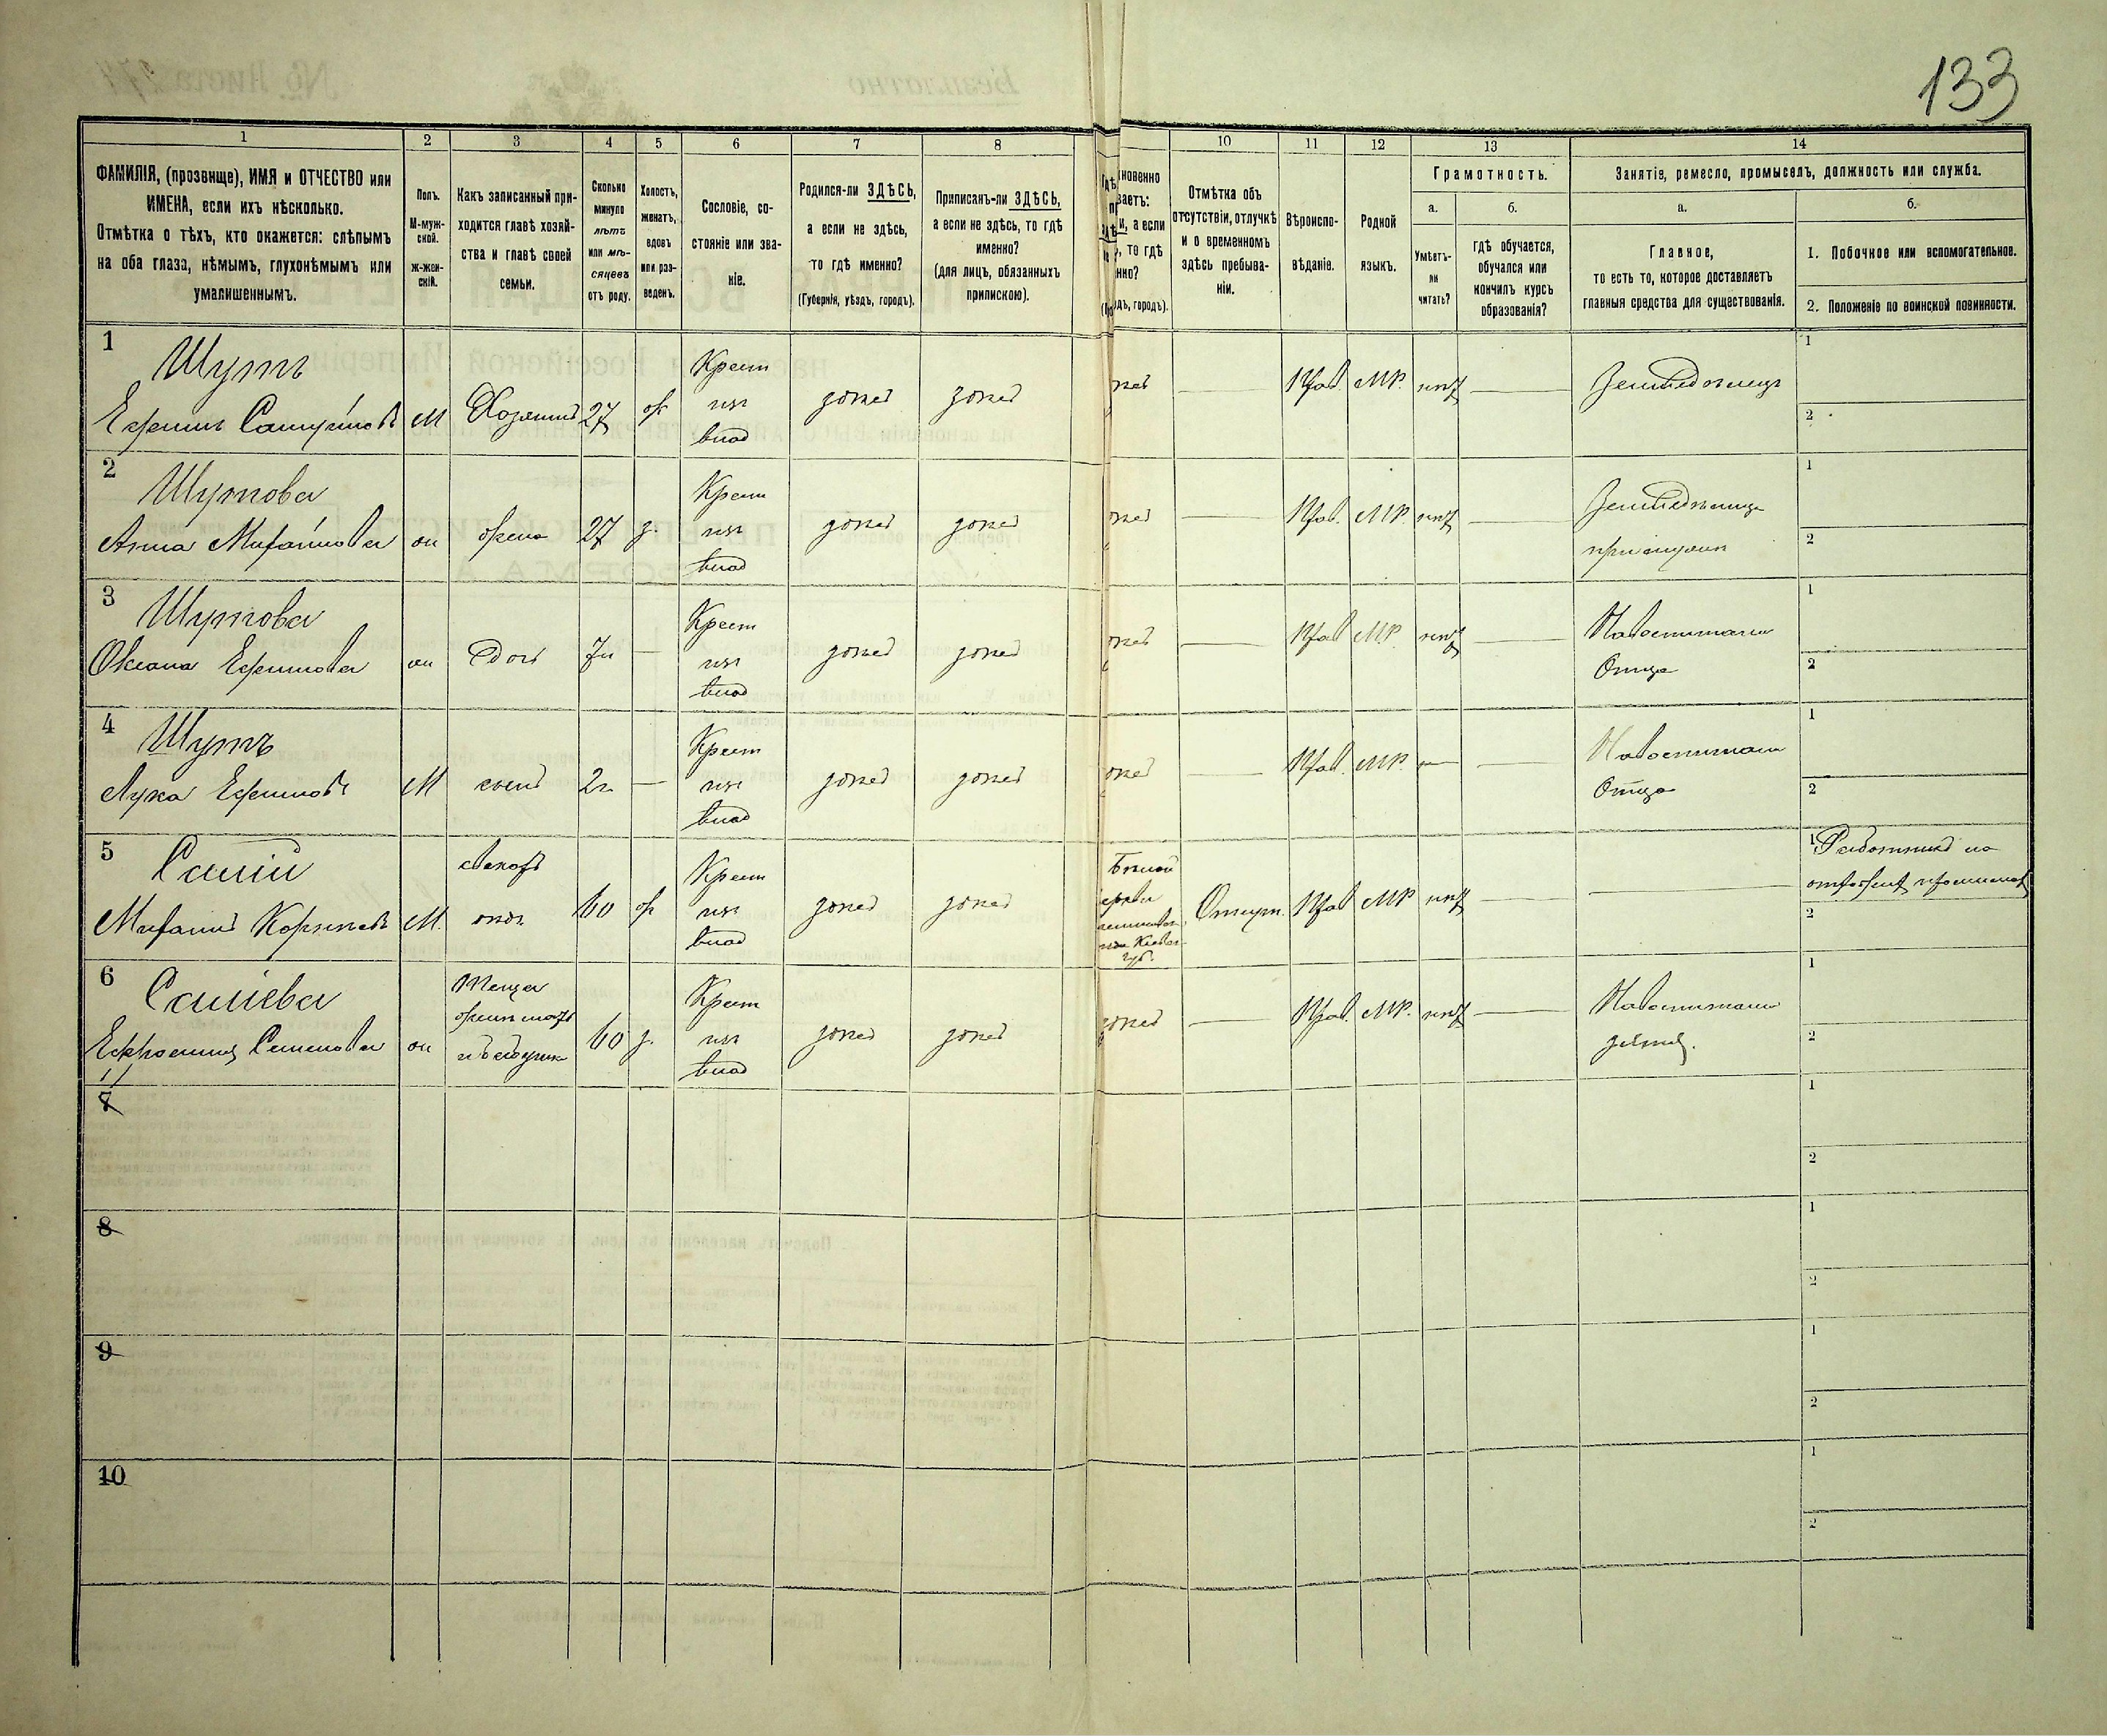 133
1 2 3 4 5 6 7 8 10 11 12 13 14
ФАМИЛІЯ, (прозвище), ИМЯ и ОТЧЕСТВО или
ИМЕНА, если ихъ нѣсколько.
Отмѣтка о тѣхъ, кто окажется: слѣпымъ
на оба глаза, нѣмымъ, глухонѣмымъ или
умалишеннымъ.
Полъ.
М-муж-
ской.
Ж-жен-
скій.
Какъ записанный при-
ходится главѣ хозяй-
ства и главѣ своей
семьи.
Сколько
минуло
лѣтъ
или мѣ-
сяцевъ
отъ роду.
Холостъ,
женатъ,
вдовъ
или раз-
веденъ.
Сословіе, со-
стояніе или зва-
ніе.
Родился-ли ЗДѢСЬ,
а если не здѣсь,
то гдѣ именно?
(Губернія, уѣздъ, городъ).
Приписанъ-ли ЗДѢСЬ,
а если не здѣсь, то гдѣ
именно?
(для лицъ, обязанныхъ
припискою).
новенно
ваетъ:
и, а если
то гдѣ
нно?
дъ, городъ).
Отмѣтка объ
отсутствіи, отлучкѣ
и о временномъ
здѣсь пребыва-
ніи.
Вѣроиспо-
вѣданіе.
Родной
языкъ.
Грамотность.
а.
Умѣетъ-
ли
читать?
б.
гдѣ обучается,
обучался или
кончилъ курсъ
образованія?
Занятіе, ремесло, промыселъ, должность или служба.
а.
Главное,
то есть то, которое доставляетъ
главныя средства для существованія.
б.
1. Побочное или вспомогательное.
2. Положеніе по воинской повинности.
1
Шутъ
Ефимъ
М
Хозяинъ
27
ж
Крест
изъ
влад
здѣсь
здѣсь
Прав.
МР.
нѣтъ
Земледѣлецъ
1
2
2
Шутова
Анна
ж
жена
27
з.
Крест
изъ
влад
здѣсь
здѣсь
Прав.
МР.
нѣтъ
Земледѣлица
при мужѣ
1
2
3
Шутова
Оксана Ефимова
ж
Дочь
7л
—
Крест
изъ
влад
здѣсь
здѣсь
Прав
МР.
нѣтъ
На воспитании
Отца
1
2
4
Шутъ
Лука Ефимовъ
М
сынъ
2г
—
Крест
изъ
влад
здѣсь
здѣсь
Прав.
МР.
—
На воспитании
Отца
1
2
5
М.
60
ж
Крест
изъ
влад
здѣсь
здѣсь
губ.
Отсут.
Прав
МР
нѣтъ
1 Работникъ на
2
6
Семенова
ж
Теща
60
з.
Крест
изъ
влад
здѣсь
здѣсь
здѣсь
Прав.
МР.
нѣтъ
На воспитании
1
2
7
1
2
8
1
2
9
1
2
10
1
2